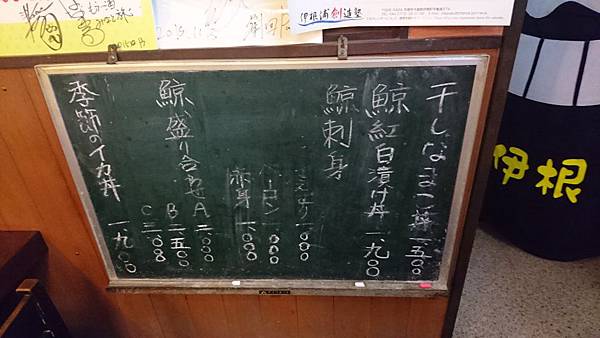 伊根浦創造塾
干しなまこ丼 一、五〇〇
鯨紅白漬け丼 一、九〇〇
鯨刺身
さえずり 一、〇〇〇
ベーコン 一、〇〇〇
赤身 一、〇〇〇
鯨盛り合わせ
A 二、〇〇〇
B 二、五〇〇
C 三、〇〇〇
季節のイカ丼 一、九〇〇
伊根